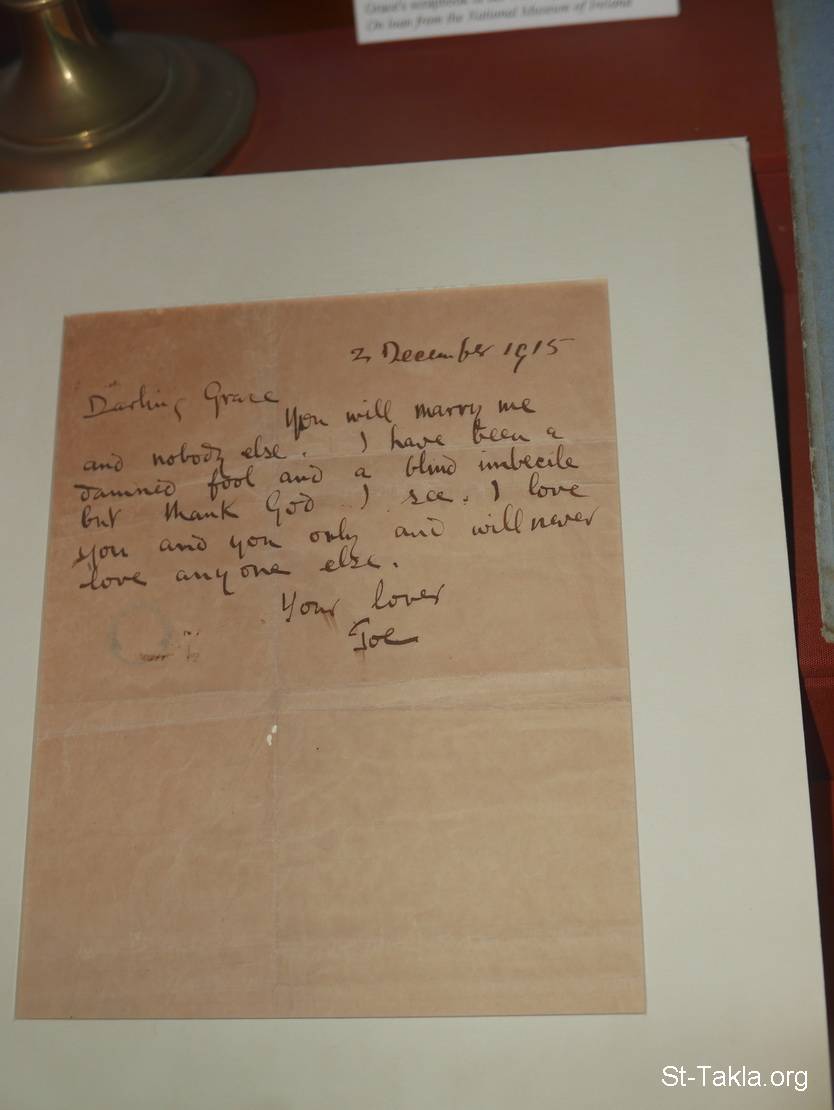 Grace's scrapbook
On loan from the National Museum of Ireland
2 December 1915
Darling Grace
You will marry me
and nobody else. I have been a
damned fool and a blind imbecile
but thank God I see. I love
you and you only and will never
love anyone else.
Your lover
Joe
St-Takla.org